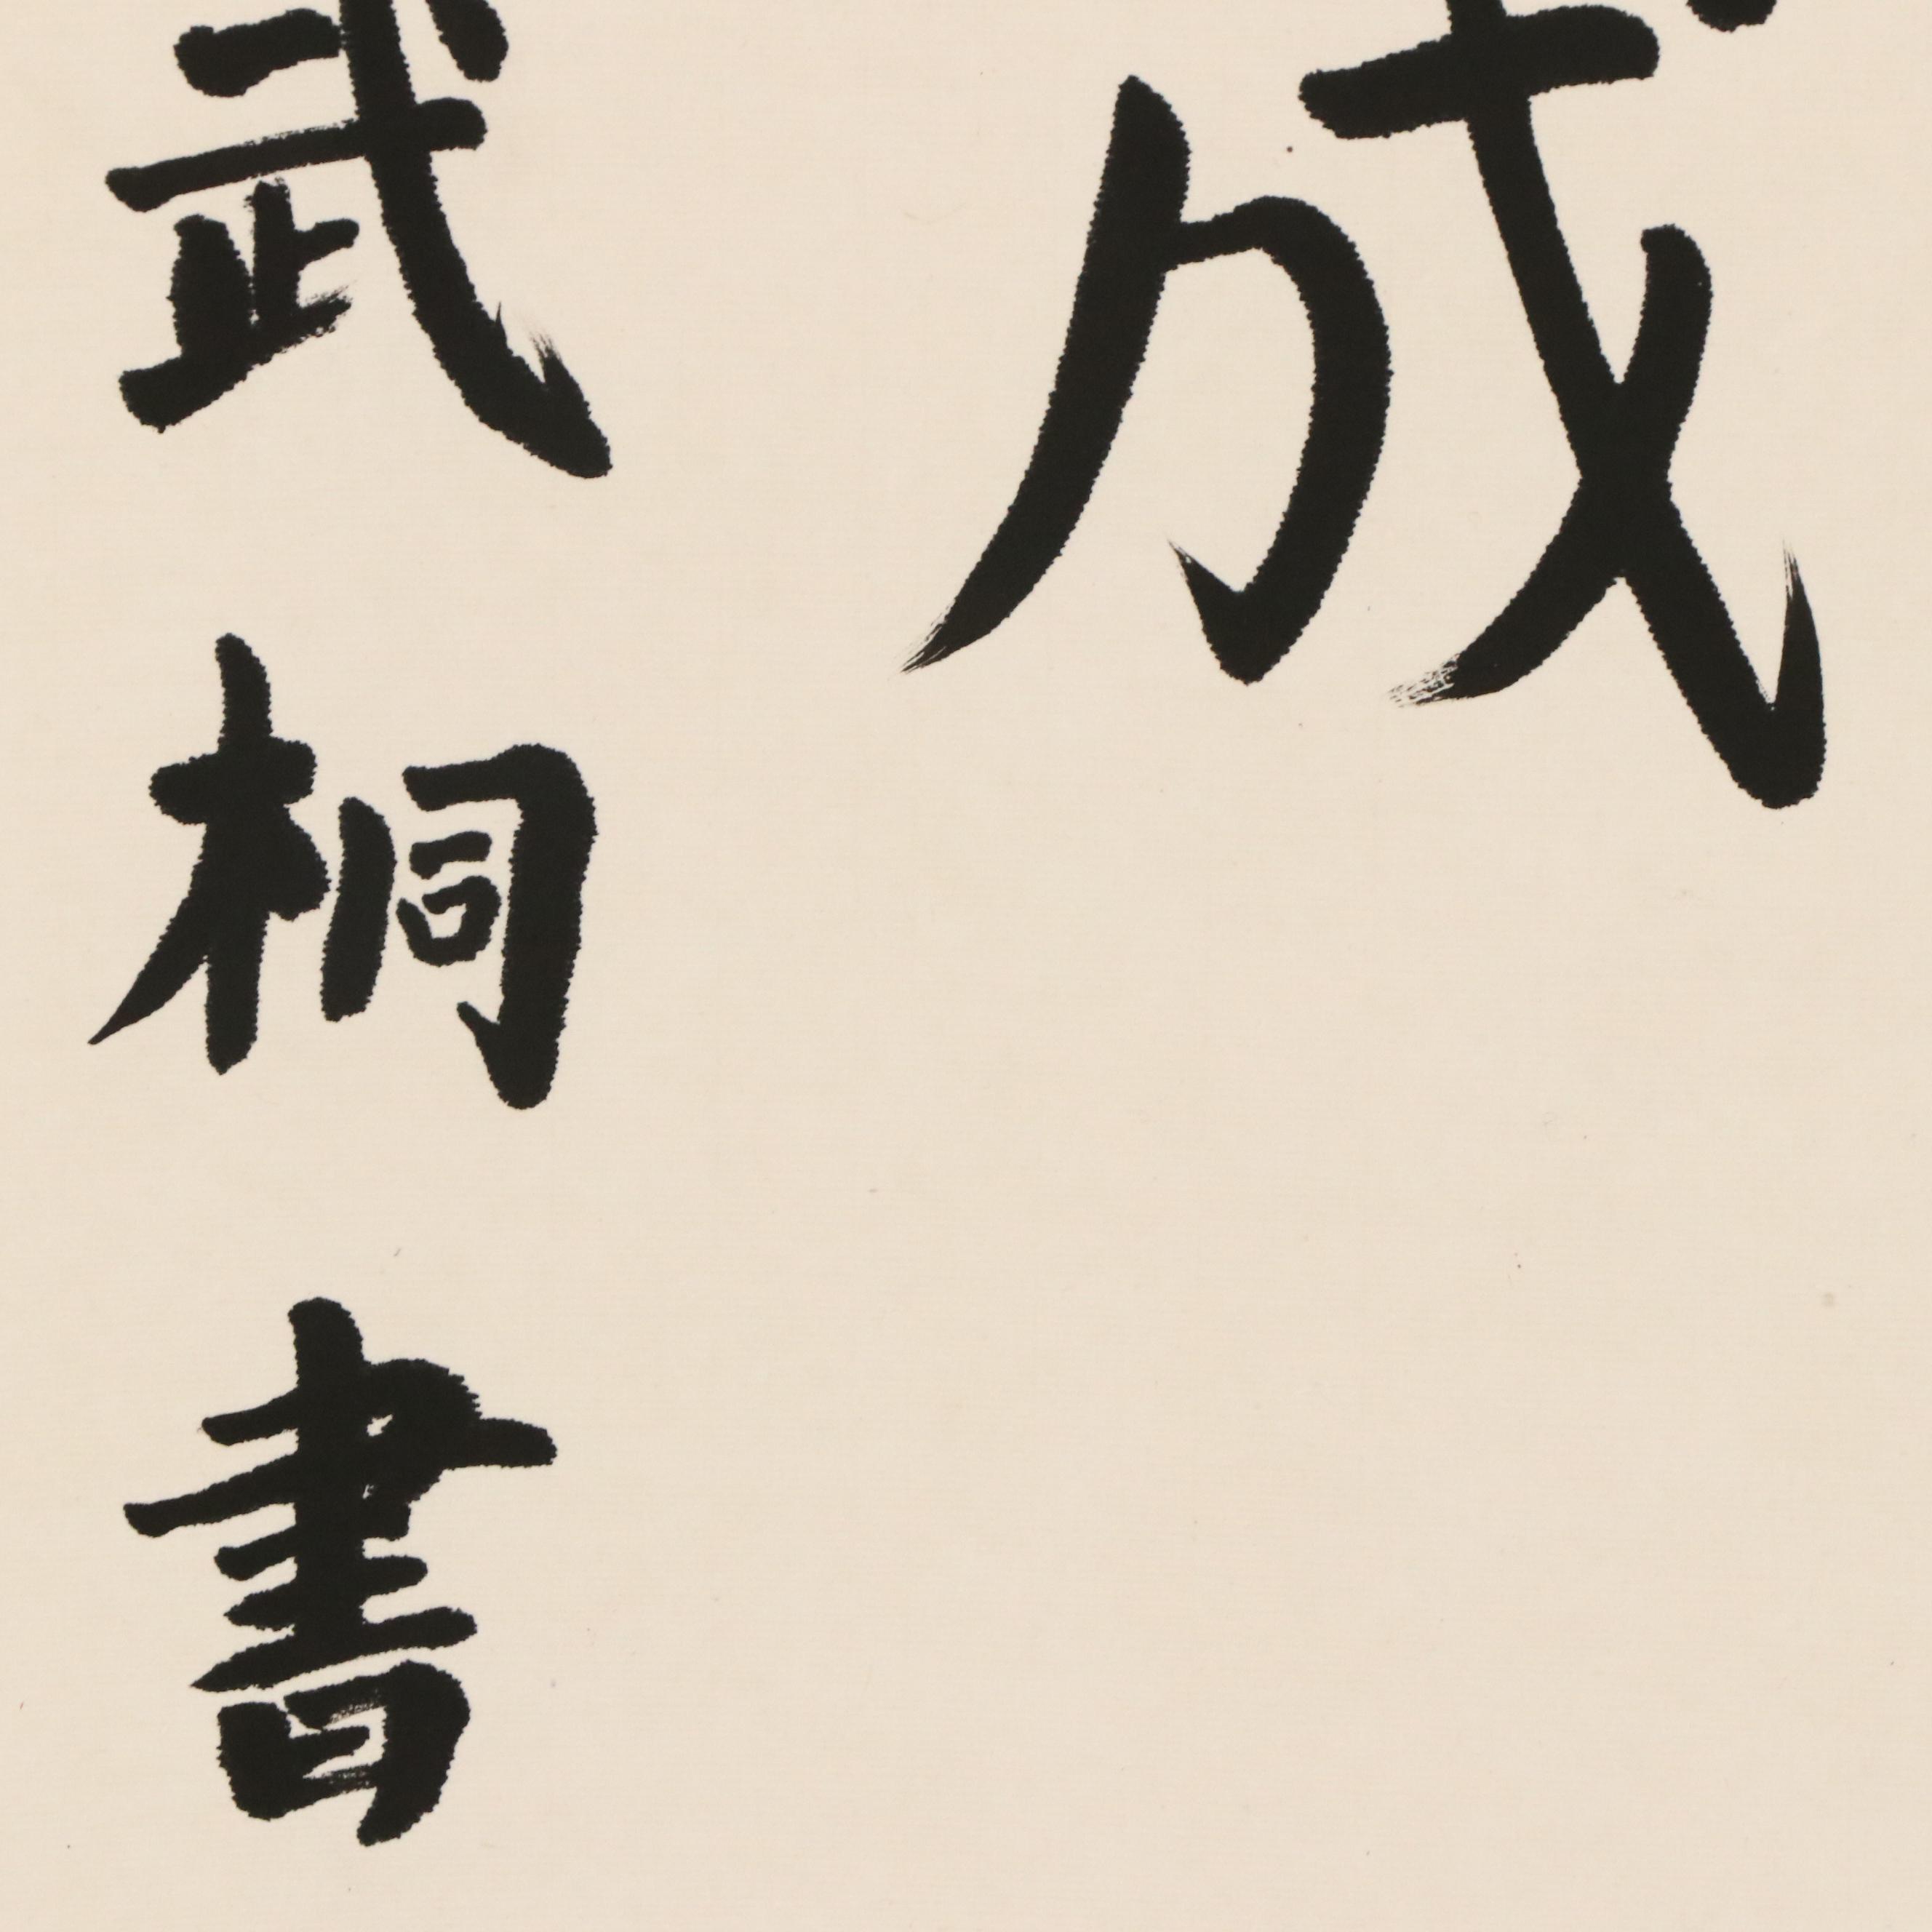 成
武桐書